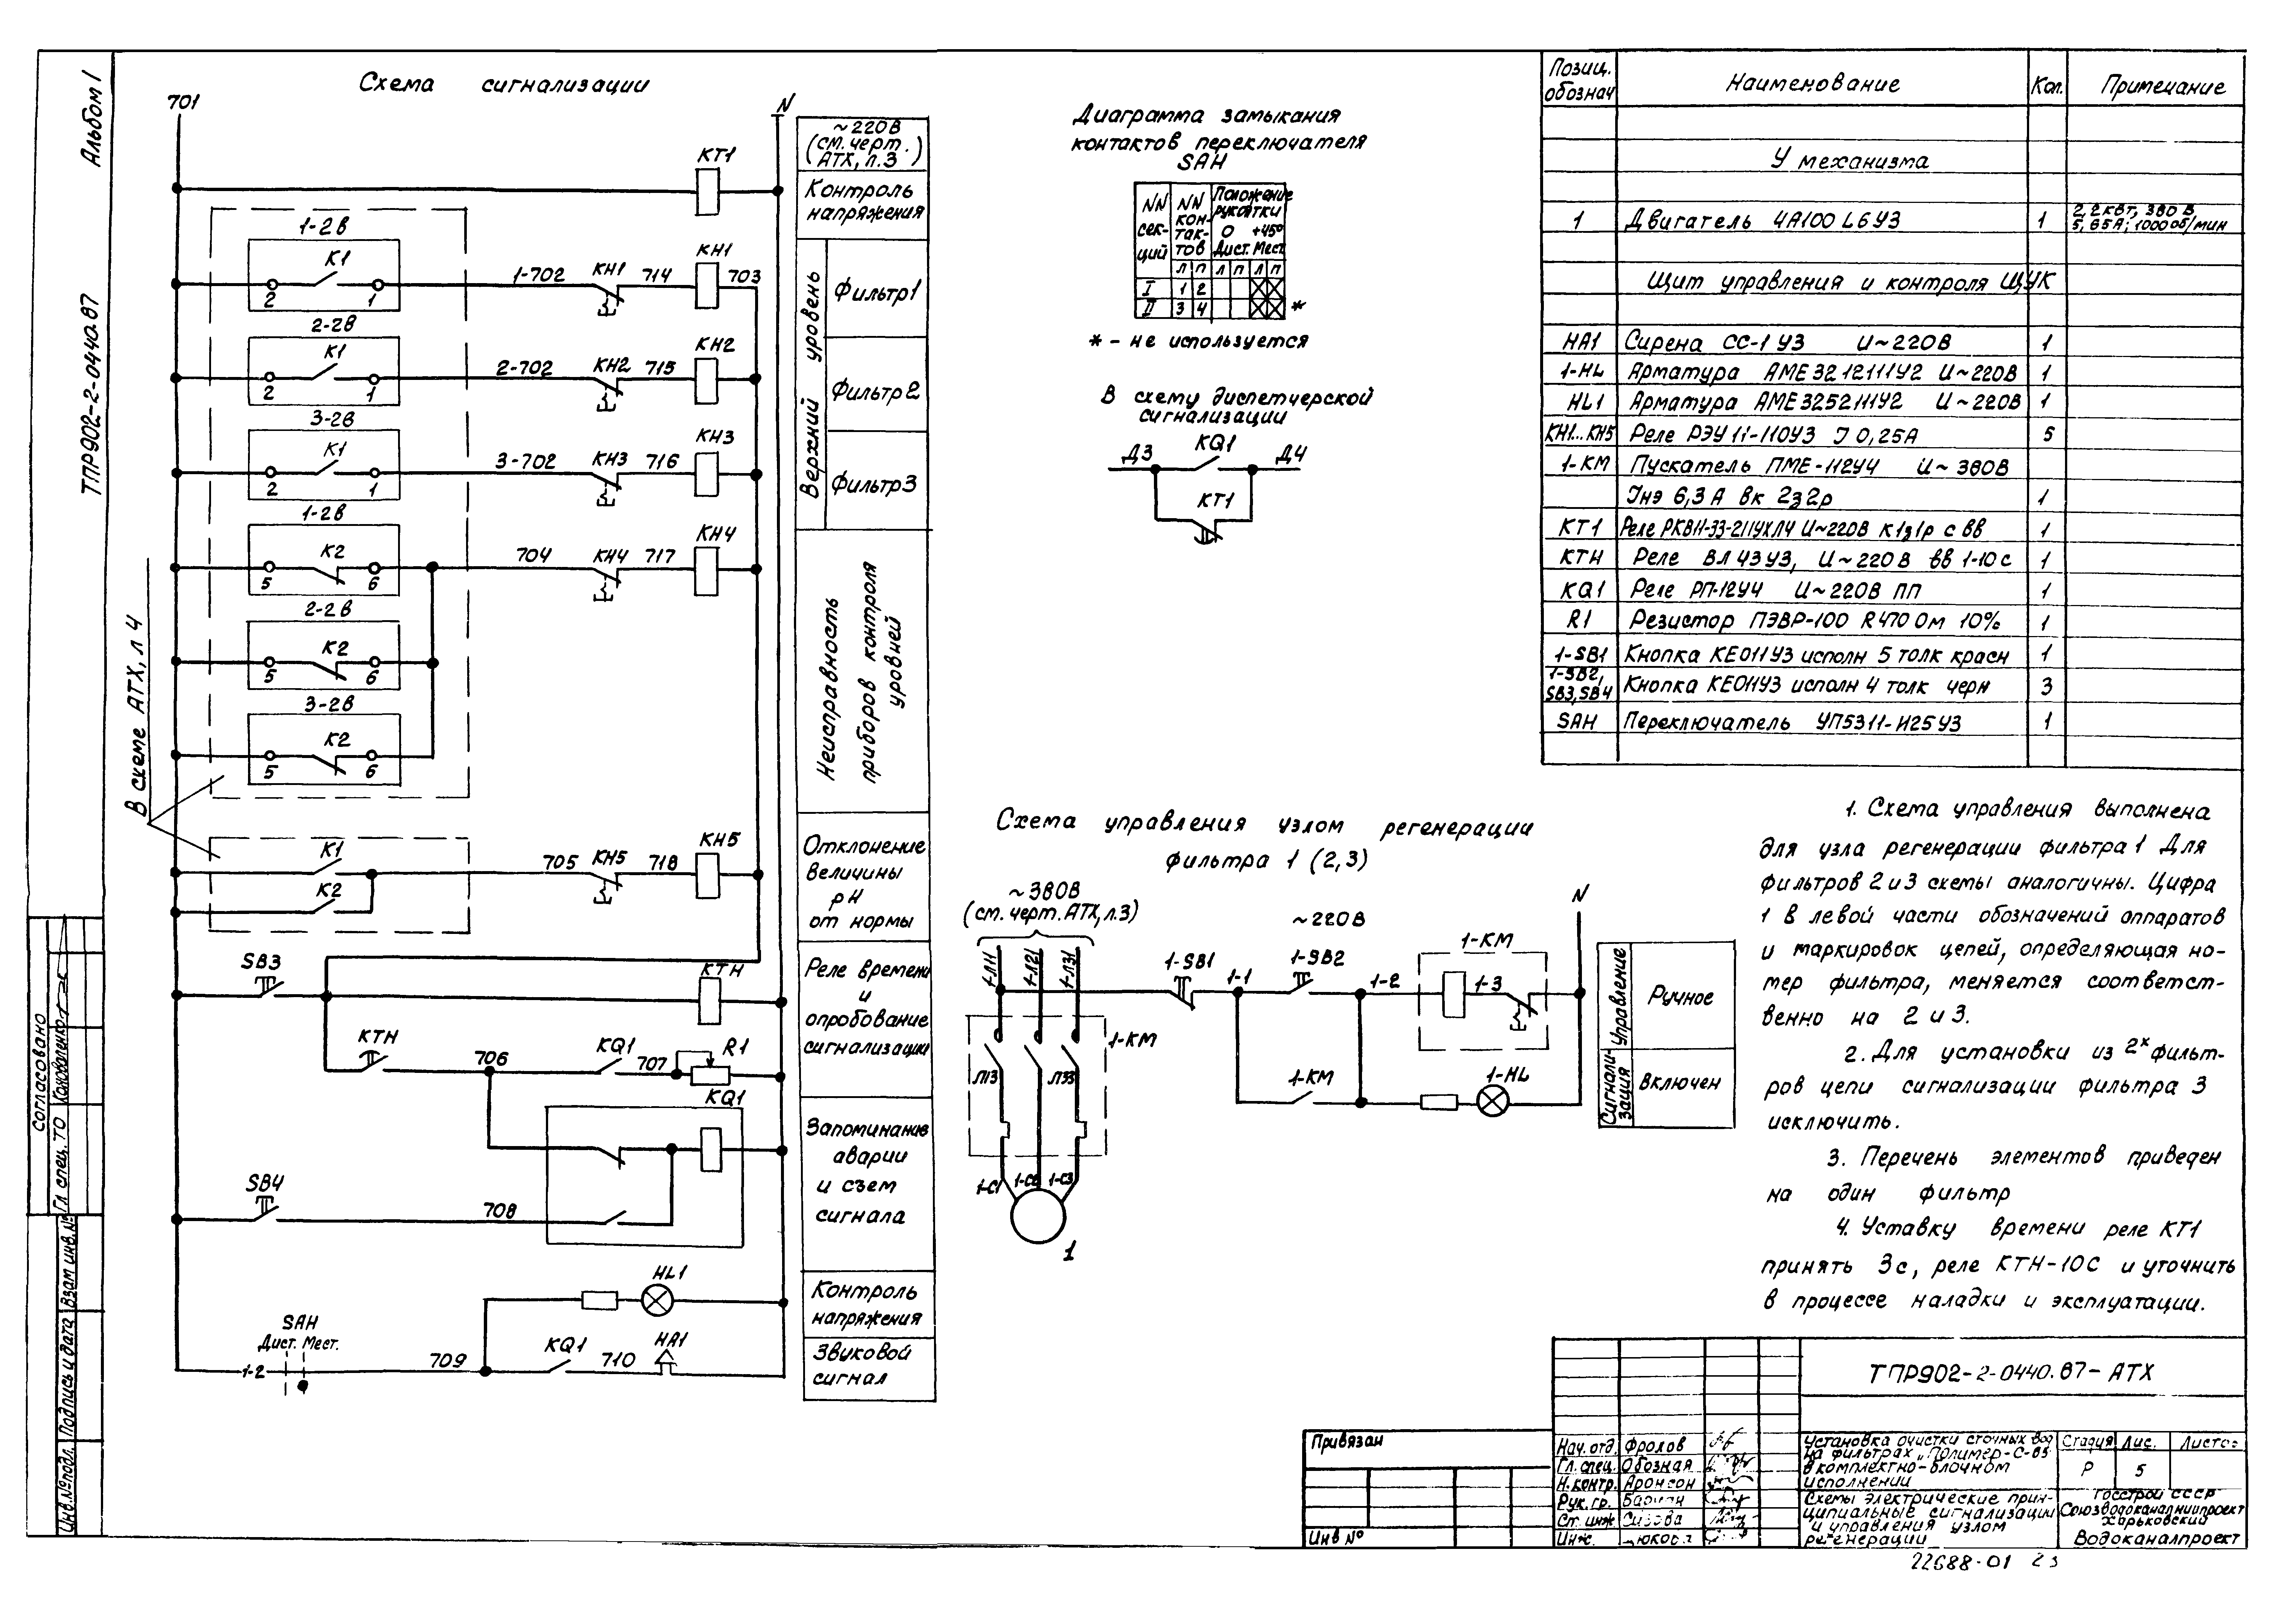 Альбом 1
ТПР902-2-0440.87
Схема сигнализации
701
N
~220В
(см. черт.
АТХ, л.3)
КТ1
Контроль
напряжения
1-2В
К1
2
1
1-702
КН1
714
КН1
703
Верхний уровень
Фильтр1
2-2В
К1
2
1
2-702
КН2
715
КН2
Фильтр2
3-2В
К1
2
1
3-702
КН3
716
КН3
Фильтр3
1-2В
К2
5
6
704
КН4
717
КН4
2-2В
К2
5
6
3-2В
К2
5
6
Неисправность
приборов контроля
уровней
В схеме АТХ, л 4
К1
К2
705
КН5
718
КН5
Отклонение
величины
рН
от нормы
SB3
КТН
Реле времени
и
опробование
сигнализации
КТН
706
KQ1
707
R1
KQ1
Запоминание
аварии
и съем
сигнала
SB4
708
HL1
Контроль
напряжения
SAH
Дист. Мест.
1-2
709
KQ1
710
НА1
Звуковой
сигнал
Диаграмма замыкания
контактов переключателя
SAH
NN
сек-
ций
NN
кон-
так-
тов
Положение
рукоятки
0 +45°
Дист. Мест.
Л П Л П Л П
I 1 2
II 3 4
*
* - не используется
В схему диспетчерской
сигнализации
Д3
KQ1
Д4
КТ1
Схема управления узлом регенерации
фильтра 1 (2,3)
~380В
(см. черт. АТХ, л.3)
~220В
N
1-Л11
1-Л21
1-Л31
1-SB1
1-1
1-SB2
1-2
1-КМ
1-3
1-КМ
Л13
Л33
1-КМ
1-HL
1-С1
1-С2
1-С3
1
Управление
Ручное
Сигнали-
зация
Включен
Позиц.
обознач
Наименование
Кол.
Примечание
У механизма
1 Двигатель 4А100L6У3 1 2,2кВт, 380В,
5,65А; 1000об/мин
Щит управления и контроля ЩУК
НА1 Сирена СС-1У3 U~220В 1
1-HL Арматура АМЕ3212111У2 U~220В 1
HL1 Арматура АМЕ3252111У2 U~220В 1
КН1...КН5 Реле РЭУ11-110У3 J 0,25А 5
1-КМ Пускатель ПМЕ-112У4 U~380В
Jнэ 6,3А вк 2з2р 1
КТ1 Реле РКВ11-33-211УХЛ4 U~220В к1з1р с вв 1
КТН Реле ВЛ43У3, U~220В вв 1-10с 1
KQ1 Реле РП-12У4 U~220В ПП 1
R1 Резистор ПЭВР-100 R470 Ом 10% 1
1-SB1 Кнопка КЕ011У3 исполн 5 толк красн 1
1-SB2,
SB3,SB4 Кнопка КЕ011У3 исполн 4 толк черн 3
SAH Переключатель УП5311-И25У3 1
1. Схема управления выполнена
для узла регенерации фильтра 1 Для
фильтров 2 и 3 схемы аналогичны. Цифра
1 в левой части обозначений аппаратов
и маркировок цепей, определяющая но-
мер фильтра, меняется соответст-
венно на 2 и 3.
2. Для установки из 2х фильт-
ров цепи сигнализации фильтра 3
исключить.
3. Перечень элементов приведен
на один фильтр
4. Уставку времени реле КТ1
принять 3с, реле КТН-10С и уточнить
в процессе наладки и эксплуатации.
Согласовано
Гл спец. ТО Коноваленко
Взам инв.№
Подпись и дата
Инв.№подл.
Привязан
Инв №
ТПР902-2-0440.87-АТХ
Нач. отд. Фролов
Гл. спец. Обозная
Н. контр. Аронсон
Рук. гр.
Ст. инж Сизова
Инж.
Установка очистки сточных вод
на фильтрах „Полимер-С-85
в комплектно-блочном
исполнении
Стадия Лис. Листов
Р 5
Схемы электрические прин-
ципиальные сигнализации
и управления узлом
регенерации
Госстрой СССР
Союзводоканалниипроект
Харьковский
Водоканалпроект
22688-01 23